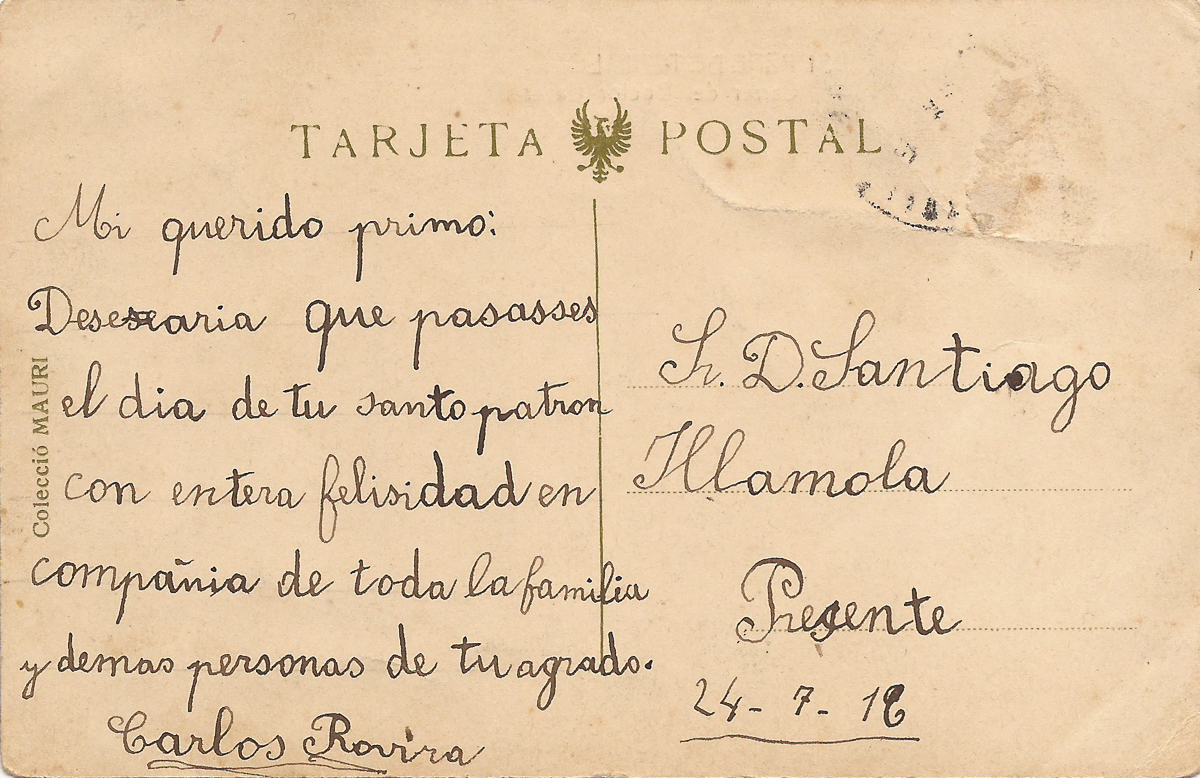 TARJETA POSTAL
Mi querido primo:
Desesearia que pasasses
el dia de tu santo patron
con entera felisidad en
compañia de toda la familia
y demas personas de tu agrado.
Carlos Rovira
Colecció MAURI
Sr. D. Santiago
Llamola
Presente
24-7-18